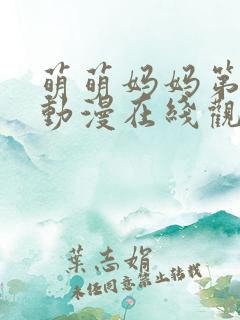 萌萌妈妈第
動漫在线觀
葉志娟
未经同意禁止转载